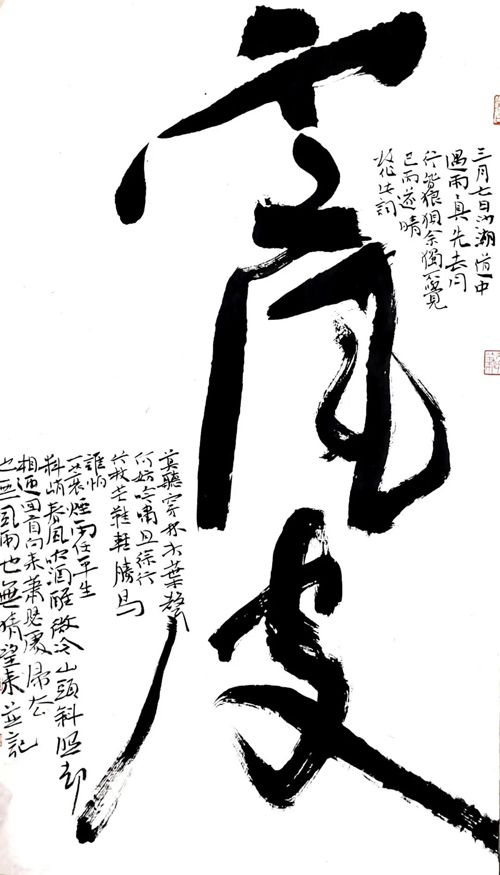 皮
三月七日沙湖道中
遇雨具先去同
行皆狼狽余獨不覺
已而遂晴
故作此詞
莫聽穿林打葉聲
何妨吟嘯且徐行
竹杖芒鞋輕勝馬
誰怕
一蓑煙雨任平生
料峭春風吹酒醒微冷山頭斜照却
相迎回首向來蕭瑟處歸去
也無風雨也無晴並記